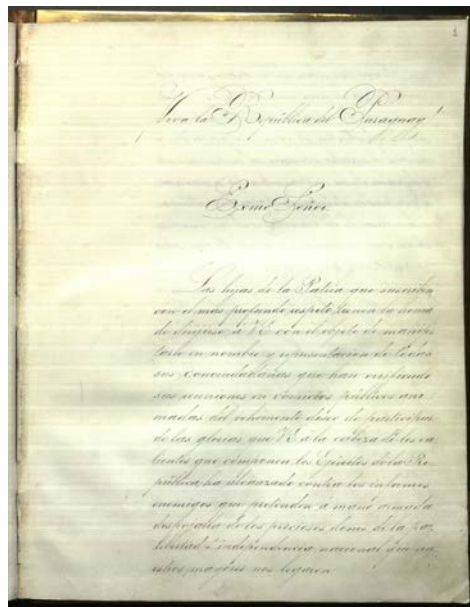 1
Viva la República del Paraguay!
Exmo Señor
Las hijas de la Patria que suscriben
con el más profundo respeto, tienen la honra
de dirijirse á V.E. con el objeto de manifes
tarle en nombre y representacion de todas
sus conciudadanas que han verificado
sus reuniones en comicios públicos ani
madas del vehemente deseo de participar
de las glorias que V.E. á la cabeza de los va
lientes que componen los Ejércitos de la Re
pública, ha alcanzado contra los infames
enemigos que pretenden á mano armada
despojarla de los preciosos dones de la paz
libertad é independencia nacional que nu
estros mayores nos legaron